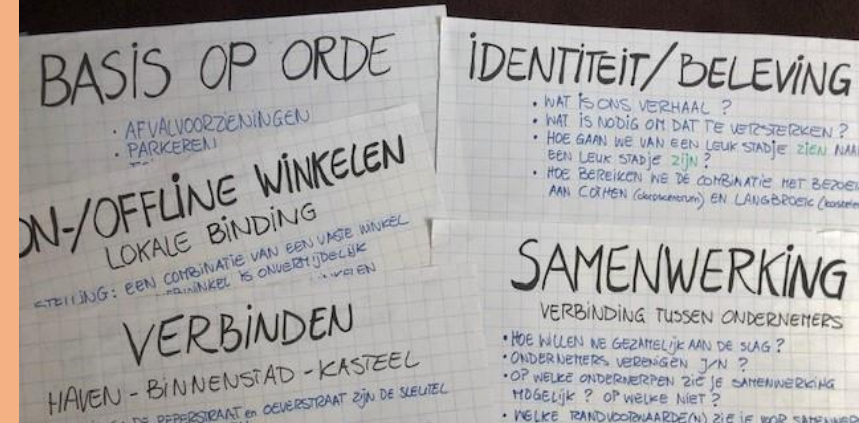 BASIS OP ORDE
• AFVALVOORZIENINGEN
• PARKEREN
ON-/OFFLINE WINKELEN
LOKALE BINDING
STELLING: EEN COMBINATIE VAN EEN VASTE WINKEL
IS ONVERMIJDELIJK
VERBINDEN
HAVEN - BINNENSTAD - KASTEEL
DE PEPERSTRAAT en OEVERSTRAAT ZIJN DE SLEUTEL
IDENTITEIT/BELEVING
• WAT IS ONS VERHAAL ?
• WAT IS NODIG OM DAT TE VERSTERKEN ?
• HOE GAAN WE VAN EEN LEUK STADJE ZIEN NAAR
EEN LEUK STADJE ZIJN ?
• HOE BEREIKEN WE DE COMBINATIE MET BEZOEK
AAN COTHEN (dorpscentrum) EN LANGBROEK
SAMENWERKING
VERBINDING TUSSEN ONDERNEMERS
• HOE WILLEN WE GEZAMELIJK AAN DE SLAG ?
• ONDERNEMERS VERENIGEN J/N ?
• OP WELKE ONDERWERPEN ZIE JE SAMENWERKING
MOGELIJK ? OP WELKE NIET ?
• WELKE RANDVOORWAARDE(N) ZIE JE VOOR